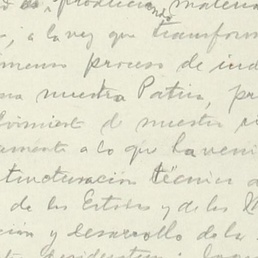 producir materia
, a la vez que transform
menso proceso de ind
na nuestra Patria, pr
lvimient d nuestra
amente a lo que ha veni
structuración técnica d
de los Estados y de los M
ción y desarrollo de la